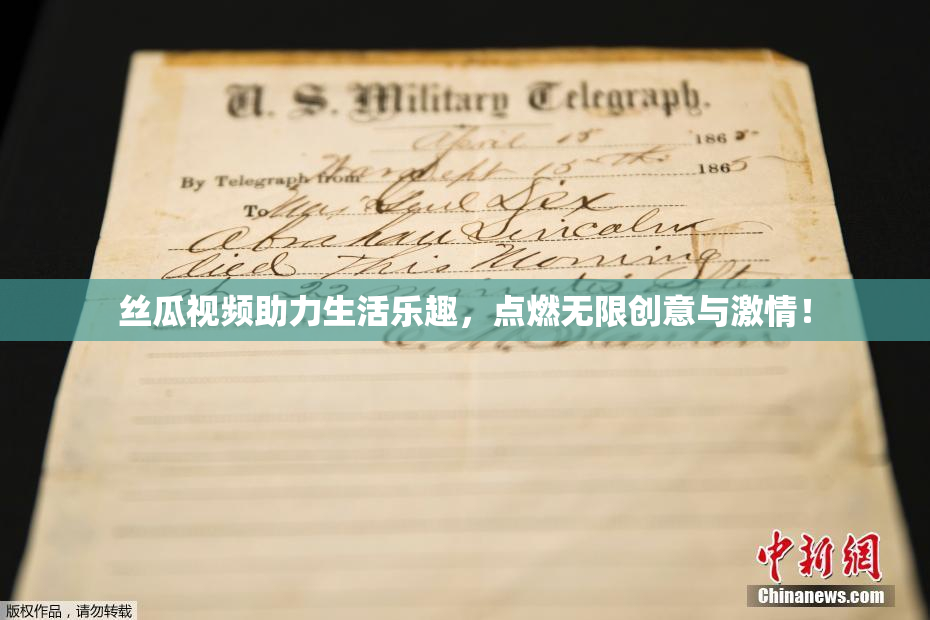 U. S. Military Telegraph.
April 15 1865
By Telegraph from War Dept 15th 1865
To Maj Genl Dix
Abraham Lincoln
died This Morning
at 22 minutes after
丝瓜视频助力生活乐趣，点燃无限创意与激情！
E. M. Stanton
中新网
Chinanews.com
版权作品，请勿转载